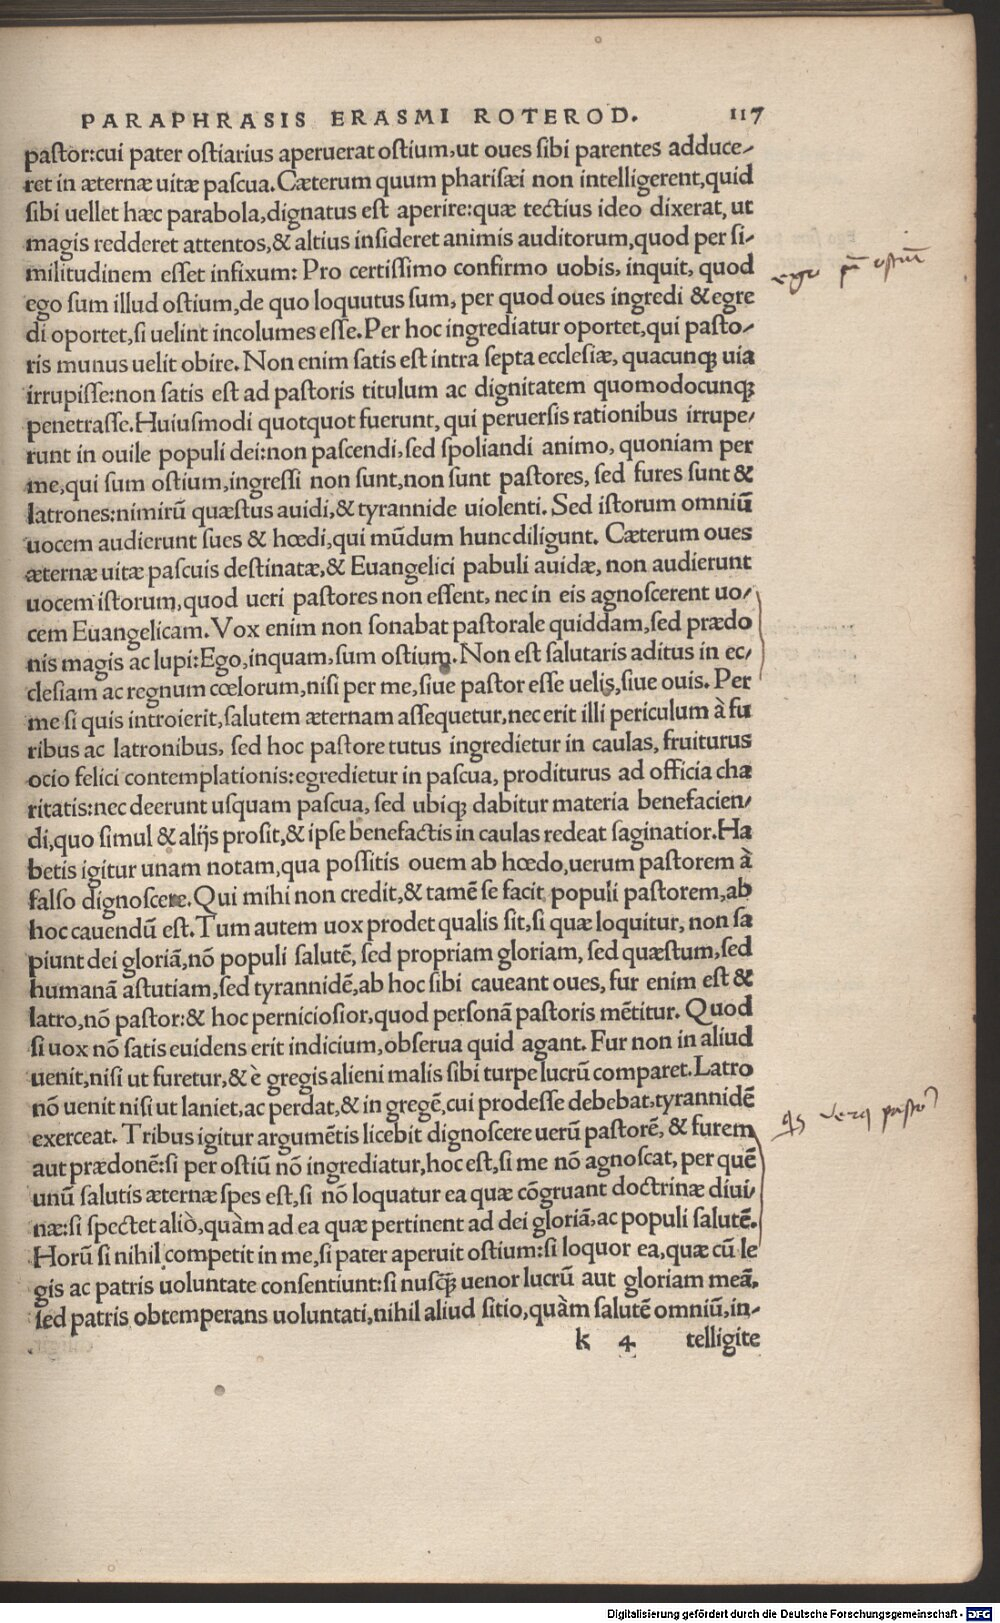 PARAPHRASIS ERASMI ROTEROD. 117
pastor:cui pater ostiarius aperuerat ostium,ut oues sibi parentes adduce-
ret in æternæ uitæ pascua.Cæterum quum pharisæi non intelligerent,quid
sibi uellet hæc parabola,dignatus est aperire:quæ tectius ideo dixerat, ut
magis redderet attentos,& altius insideret animis auditorum,quod per si-
militudinem esset infixum: Pro certissimo confirmo uobis, inquit, quod
ego sum illud ostium,de quo loquutus sum, per quod oues ingredi & egre
di oportet,si uelint incolumes esse.Per hoc ingrediatur oportet,qui pasto-
ris munus uelit obire. Non enim satis est intra septa ecclesiæ, quacunq; uia
irrupisse:non satis est ad pastoris titulum ac dignitatem quomodocunq;
penetrasse.Huiusmodi quotquot fuerunt, qui peruersis rationibus irrupe-
runt in ouile populi dei:non pascendi,sed spoliandi animo, quoniam per
me,qui sum ostium,ingressi non sunt,non sunt pastores, sed fures sunt &
latrones:nimirũ quæstus auidi,& tyrannide uiolenti. Sed istorum omniũ
uocem audierunt sues & hœdi,qui mũdum hunc diligunt. Cæterum oues
æternæ uitæ pascuis destinatæ,& Euangelici pabuli auidæ, non audierunt
uocem istorum,quod ueri pastores non essent, nec in eis agnoscerent uo-
cem Euangelicam.Vox enim non sonabat pastorale quiddam,sed prædo
nis magis ac lupi:Ego,inquam,sum ostium.Non est salutaris aditus in ec-
clesiam ac regnum cœlorum,nisi per me,siue pastor esse uelis,siue ouis. Per
me si quis introierit,salutem æternam assequetur,nec erit illi periculum à fu
ribus ac latronibus, sed hoc pastore tutus ingredietur in caulas, fruiturus
ocio felici contemplationis:egredietur in pascua, proditurus ad officia cha
ritatis:nec deerunt usquam pascua, sed ubiq; dabitur materia benefacien-
di,quo simul & alijs prosit,& ipse benefactis in caulas redeat saginatior.Ha
betis igitur unam notam,qua possitis ouem ab hœdo,uerum pastorem à
falso dignoscere.Qui mihi non credit,& tamẽ se facit populi pastorem,ab
hoc cauendũ est.Tum autem uox prodet qualis sit,si quæ loquitur, non sa
piunt dei gloriã,nõ populi salutẽ, sed propriam gloriam, sed quæstum,sed
humanã astutiam,sed tyrannidẽ,ab hoc sibi caueant oues, fur enim est &
latro,nõ pastor:& hoc perniciosior,quod personã pastoris mẽtitur. Quod
si uox nõ satis euidens erit indicium,obserua quid agant. Fur non in aliud
uenit,nisi ut furetur,& è gregis alieni malis sibi turpe lucrũ comparet.Latro
nõ uenit nisi ut laniet,ac perdat,& in gregẽ,cui prodesse debebat,tyrannidẽ
exerceat. Tribus igitur argumẽtis licebit dignoscere uerũ pastorẽ, & furem
aut prædonẽ:si per ostiũ nõ ingrediatur,hoc est,si me nõ agnoscat, per quẽ
unũ salutis æternæ spes est,si nõ loquatur ea quæ cõgruant doctrinæ diui-
næ:si spectet aliò,quàm ad ea quæ pertinent ad dei gloriã,ac populi salutẽ.
Horũ si nihil competit in me,si pater aperuit ostium:si loquor ea,quæ cũ le
gis ac patris uoluntate consentiunt:si nusq̃; uenor lucrũ aut gloriam meã,
sed patris obtemperans uoluntati,nihil aliud sitio,quàm salutẽ omniũ,in-
k 4 telligite
ego sũ ostiũ
Digitalisierung gefördert durch die Deutsche Forschungsgemeinschaft - DFG